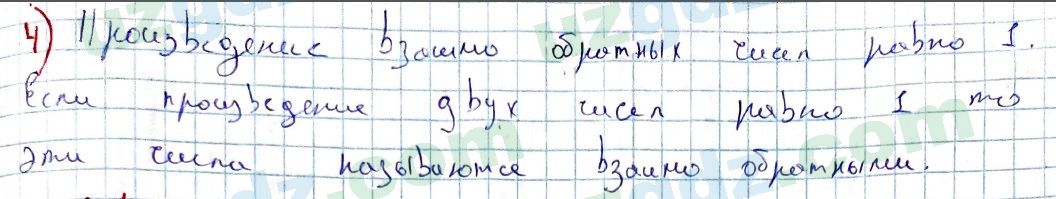 4) Произведение взаимо обратных чисел равно 1.
Если произведение двух чисел равно 1 то
эти числа называются взаимо обратными.